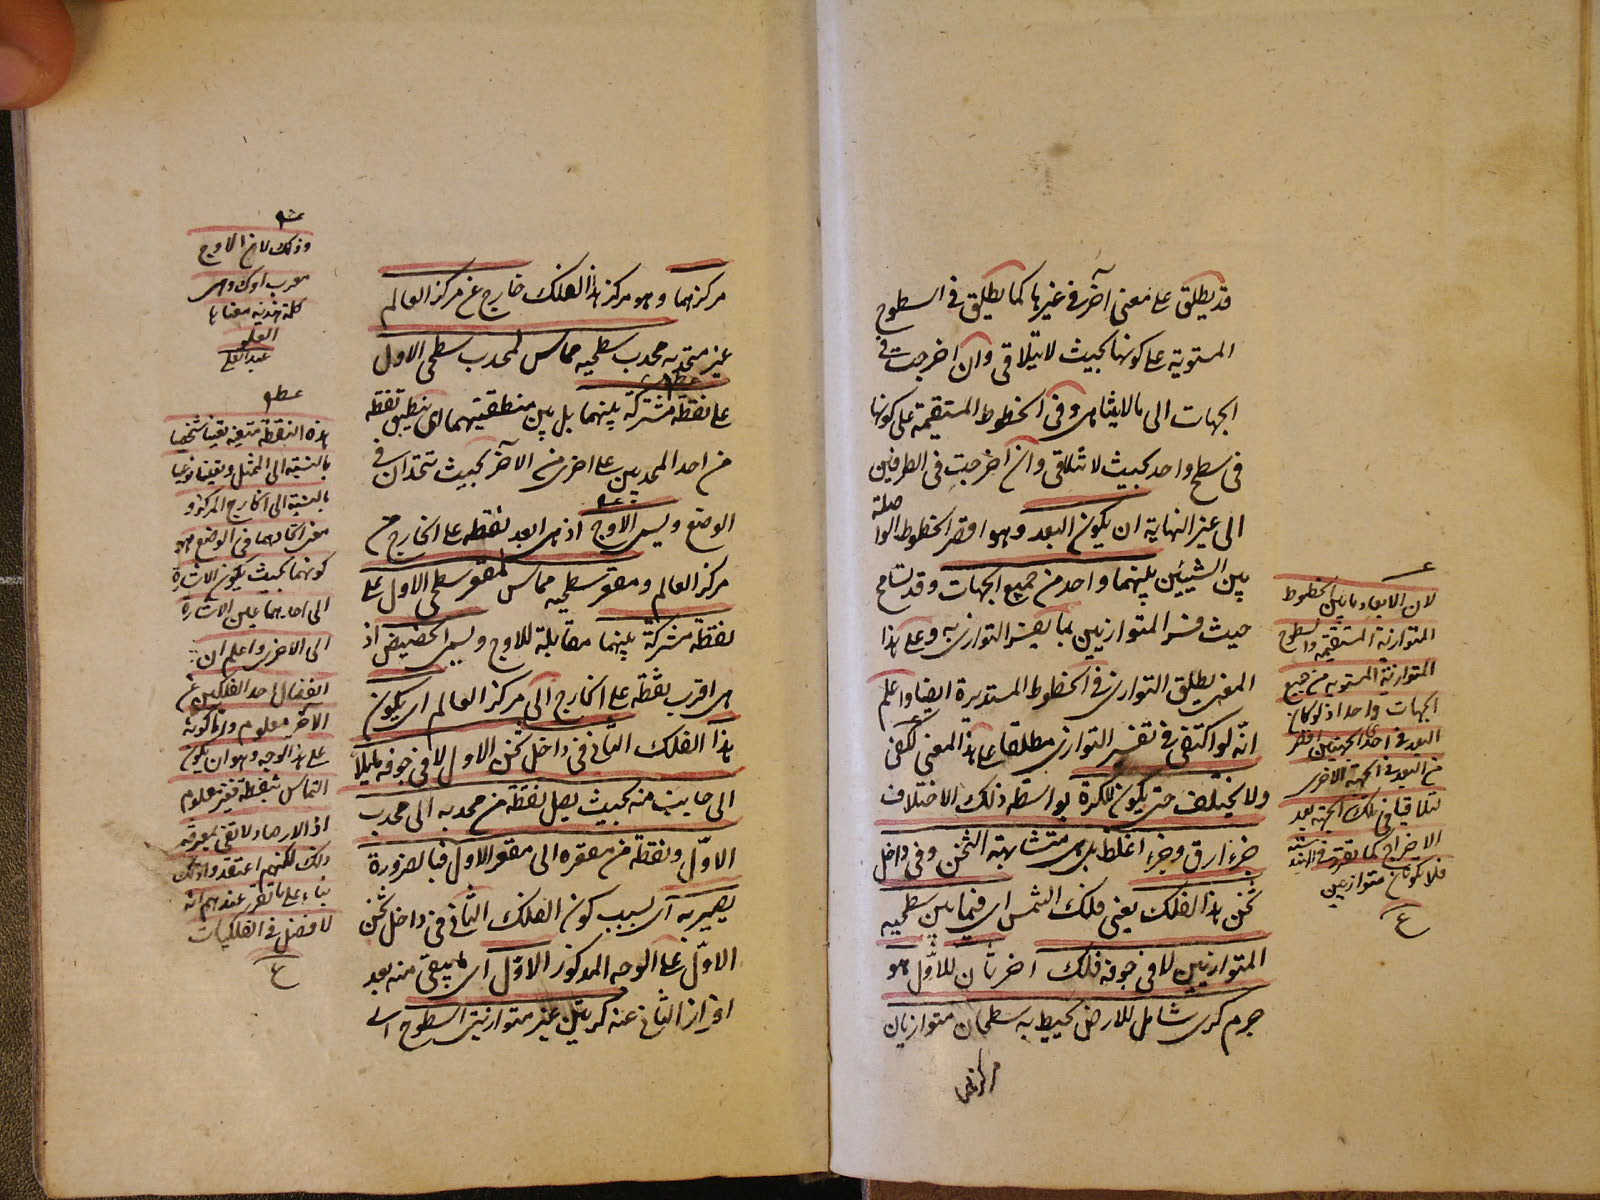 قد يطلق على معنى آخر في غيرها كما يطلق في السطوح
المستوية على كونها بحيث لا يتلاقى وان اخرجت في
الجهات الى ما لا يتناهى وفي الخطوط المستقيمة على كونها
في سطح واحد بحيث لا تتلاقى وان اخرجت في الطرفين
الى غير النهاية ان يكون البعد وهو اقصر الخطوط الواصلة
بين الشيئين بينهما واحد من جميع الجهات وقد تسامح
حيث فسر المتوازيين بما يفسر التوازي به وعلى هذا
المعنى يطلق التوازي في الخطوط المستديرة ايضا واعلم
انه لو اكتفى في تفسير التوازي مطلقا على هذا المعنى لكفى
ولا يختلف حتى يكون للكرة بواسطة ذلك الاختلاف
جزء ارق وجزء اغلظ بل هي متشابهة الثخن وفي داخل
ثخن هذا الفلك يعني فلك الشمس اي فيما بين سطحيه
المتوازيين لا في جوفه فلك آخر ثان للاول هو
جرم كرى شامل للارض يحيط به سطحان متوازيان
مركزهما
لان الابعاد ما بين الخطوط
المتوازية المستقيمة والسطوح
المتوازية المستوية من جميع
الجهات واحد اذ لو كان
البعد في احد الجهتين اقصر
من البعد في الجهة الاخرى
لتلاقيا في تلك الجهة بعد
الاخراج كما تقرر في
فلا تكونان متوازيين
ع
مركزهما وهو مركز هذا الفلك خارج عن مركز العالم
غير متحد به محدب سطحيه مماس لمحدب سطحي الاول
على نقطة مشتركة بينهما بل بين منطقتيهما اي ينطبق نقطة
من احد المحدبين على اخرى من الآخر بحيث تتحدان في
الوضع ويسمى الاوج اذ هي ابعد نقطة على الخارج من
مركز العالم ومقعر سطحيه مماس لمقعر سطحي الاول على
نقطة مشتركة بينهما مقابلة للاوج ويسمى الحضيض اذ
هي اقرب نقطة على الخارج الى مركز العالم اي يكون
هذا الفلك الثاني في داخل ثخن الاول لا في جوفه مايلا
الى جانب منه بحيث يصل نقطة من محدبه الى محدب
الاول ونقطة من مقعره الى مقعر الاول فبالضرورة
يصير به اي بسبب كون الفلك الثاني في داخل ثخن
الاول على الوجه المذكور الاول اي ما يبقى منه بعد
افراز الثاني عنه كرتين غير متوازيتي السطوح اي
وذلك لان الاوج
معرب اوك وهي
كلمة هندية معناها
العلو
عبد العلي
هذه النقطة متعينة تعينا شخصيا
بالنسبة الى الممثل وتعينا نوعيا
بالنسبة الى الخارج المركز و
معنى اتحادهما في الوضع هو
كونهما بحيث يكون الاشارة
الى احديهما عين الاشارة
الى الاخرى واعلم ان
انفصال احد الفلكين عن
الآخر معلوم واما كونه
على هذا الوجه وهو ان يكون
التماس بنقطة فغير معلوم
اذ الارصاد لا تفي بمعرفة
ذلك لكنهم اعتقدوا ذلك
بناء على ما تقرر عندهم انه
لا فضل في الفلكيات
ع